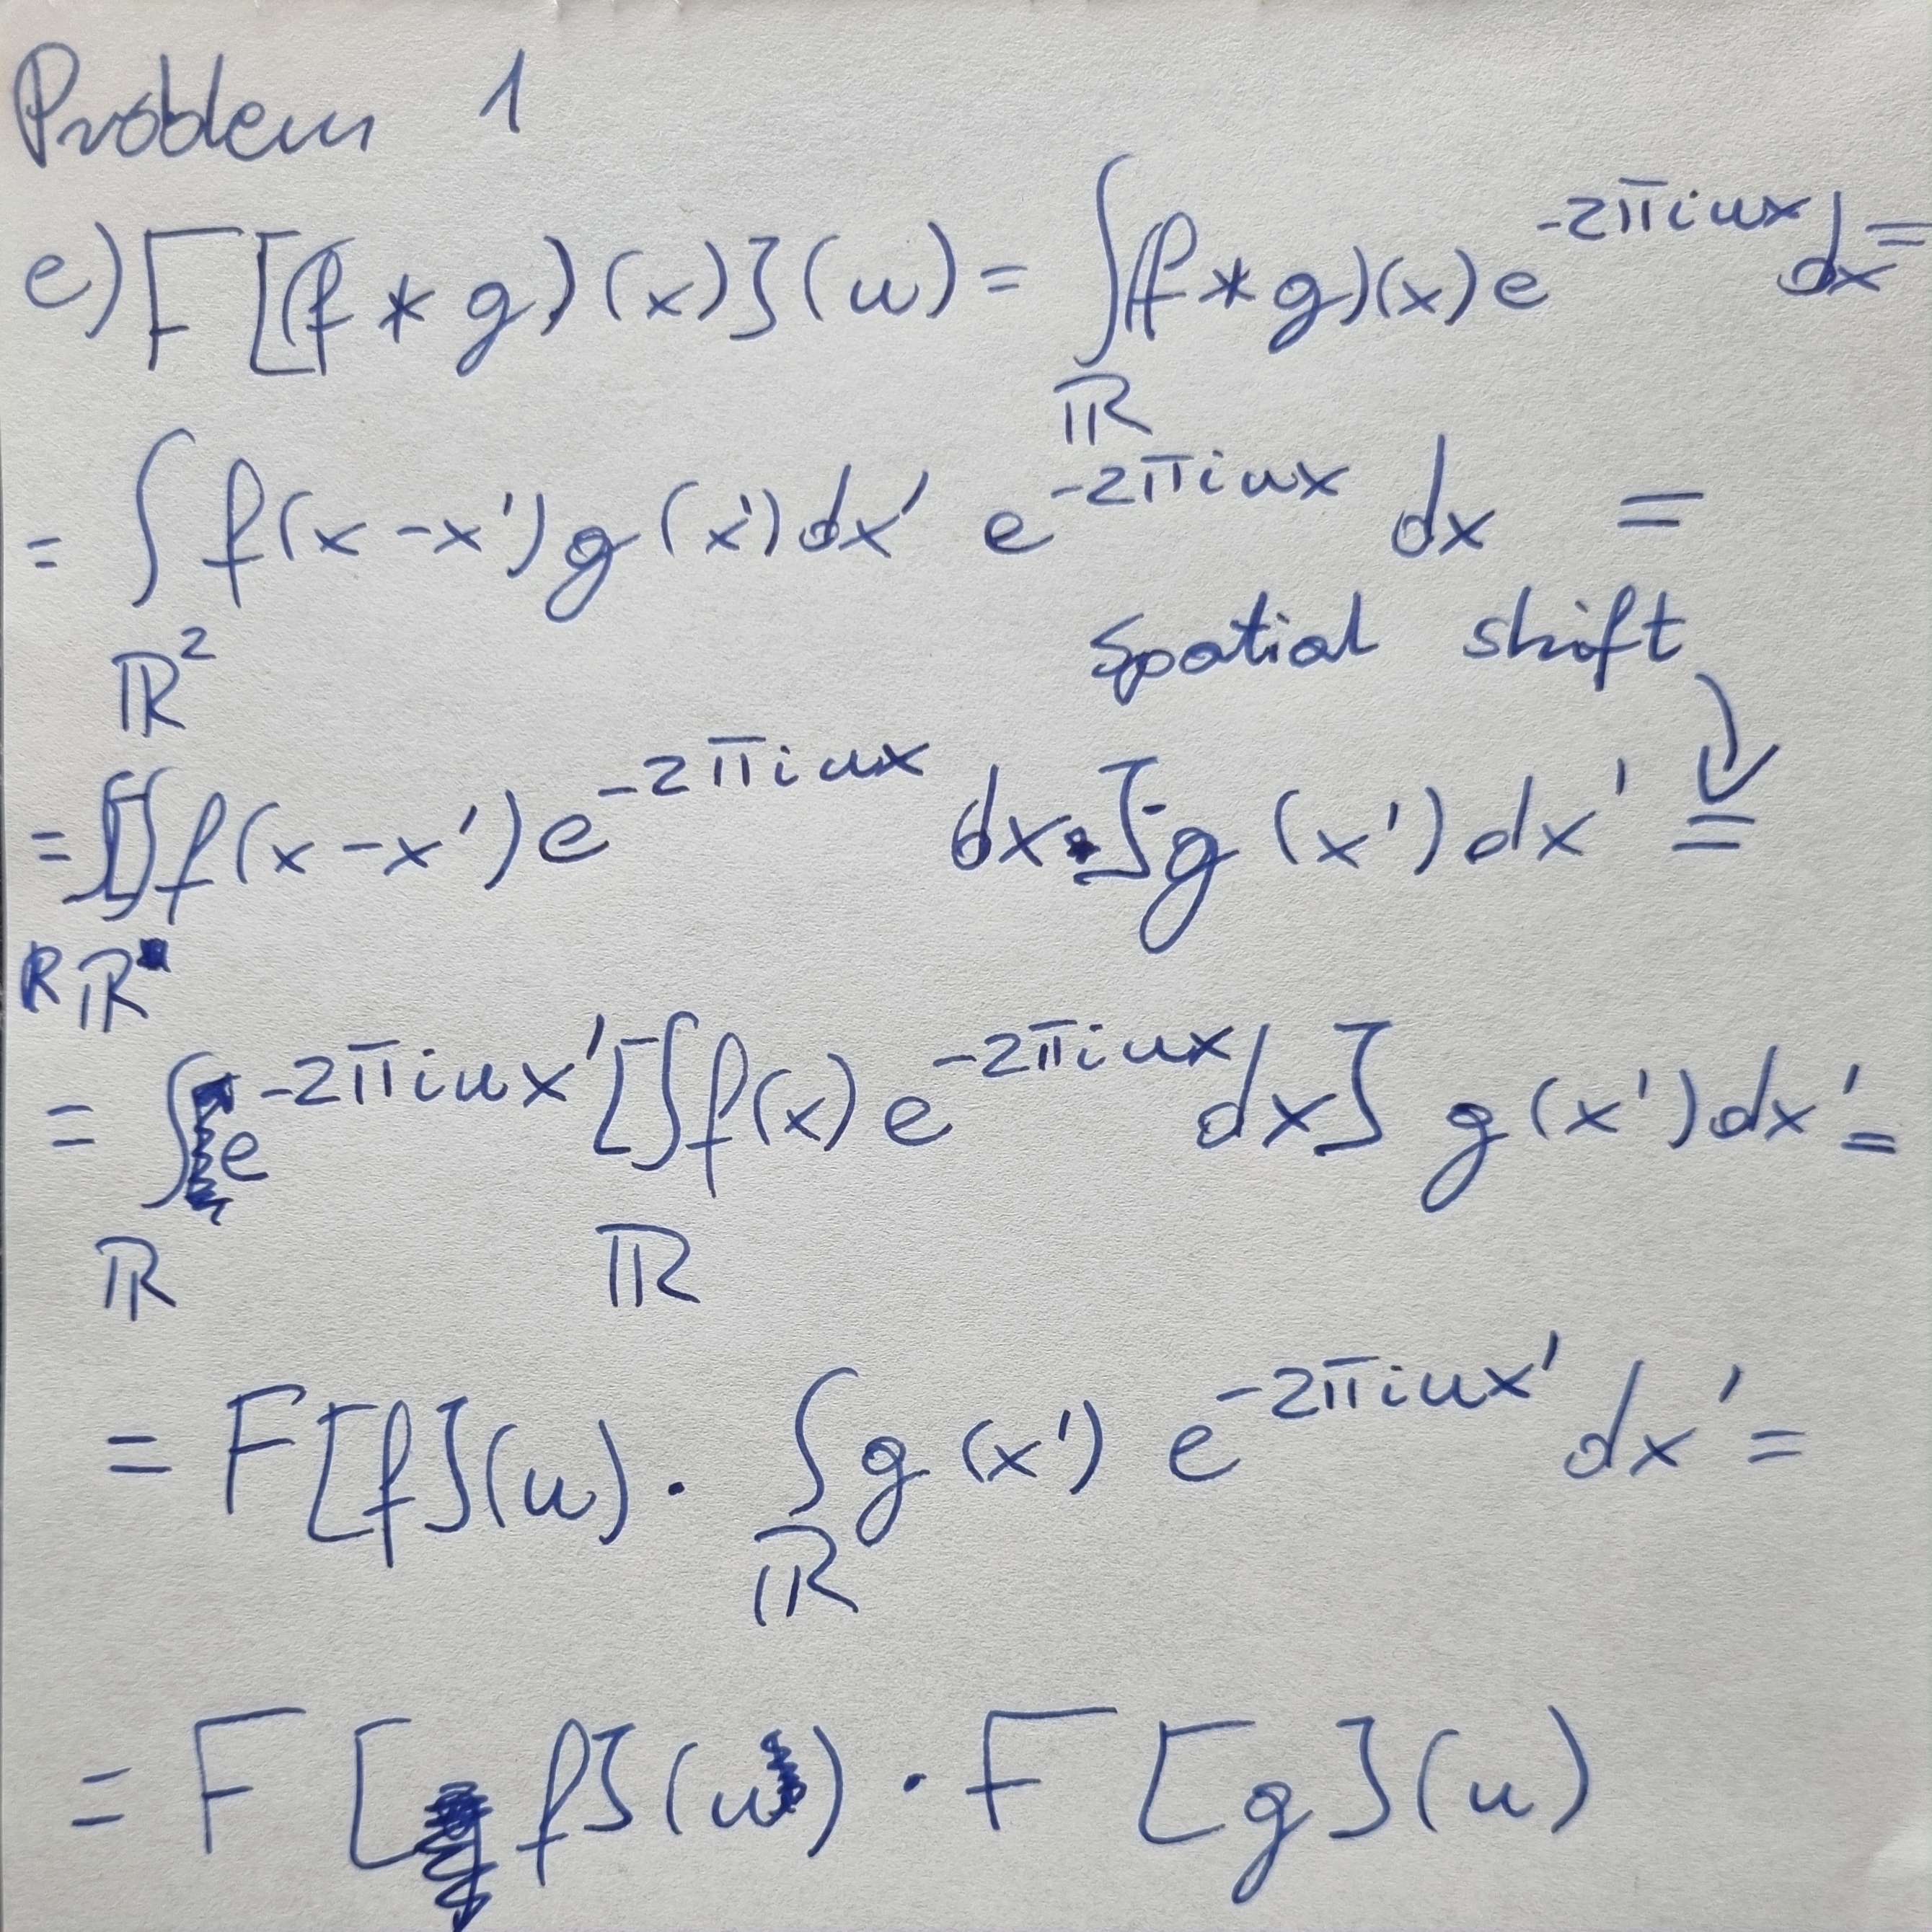 Problem 1
e) F[(f * g)(x)](u) = ∫_ℝ (f * g)(x) e^{-2πiux} dx =
= ∫_{ℝ²} f(x-x')g(x')dx' e^{-2πiux} dx =
spatial shift
= ∫_ℝ [∫_ℝ f(x-x') e^{-2πiux} dx] · g(x')dx' =
= ∫_ℝ e^{-2πiux'} [∫_ℝ f(x) e^{-2πiux} dx] g(x')dx' =
= F[f](u) · ∫_ℝ g(x') e^{-2πiux'} dx' =
= F[f](u) · F[g](u)